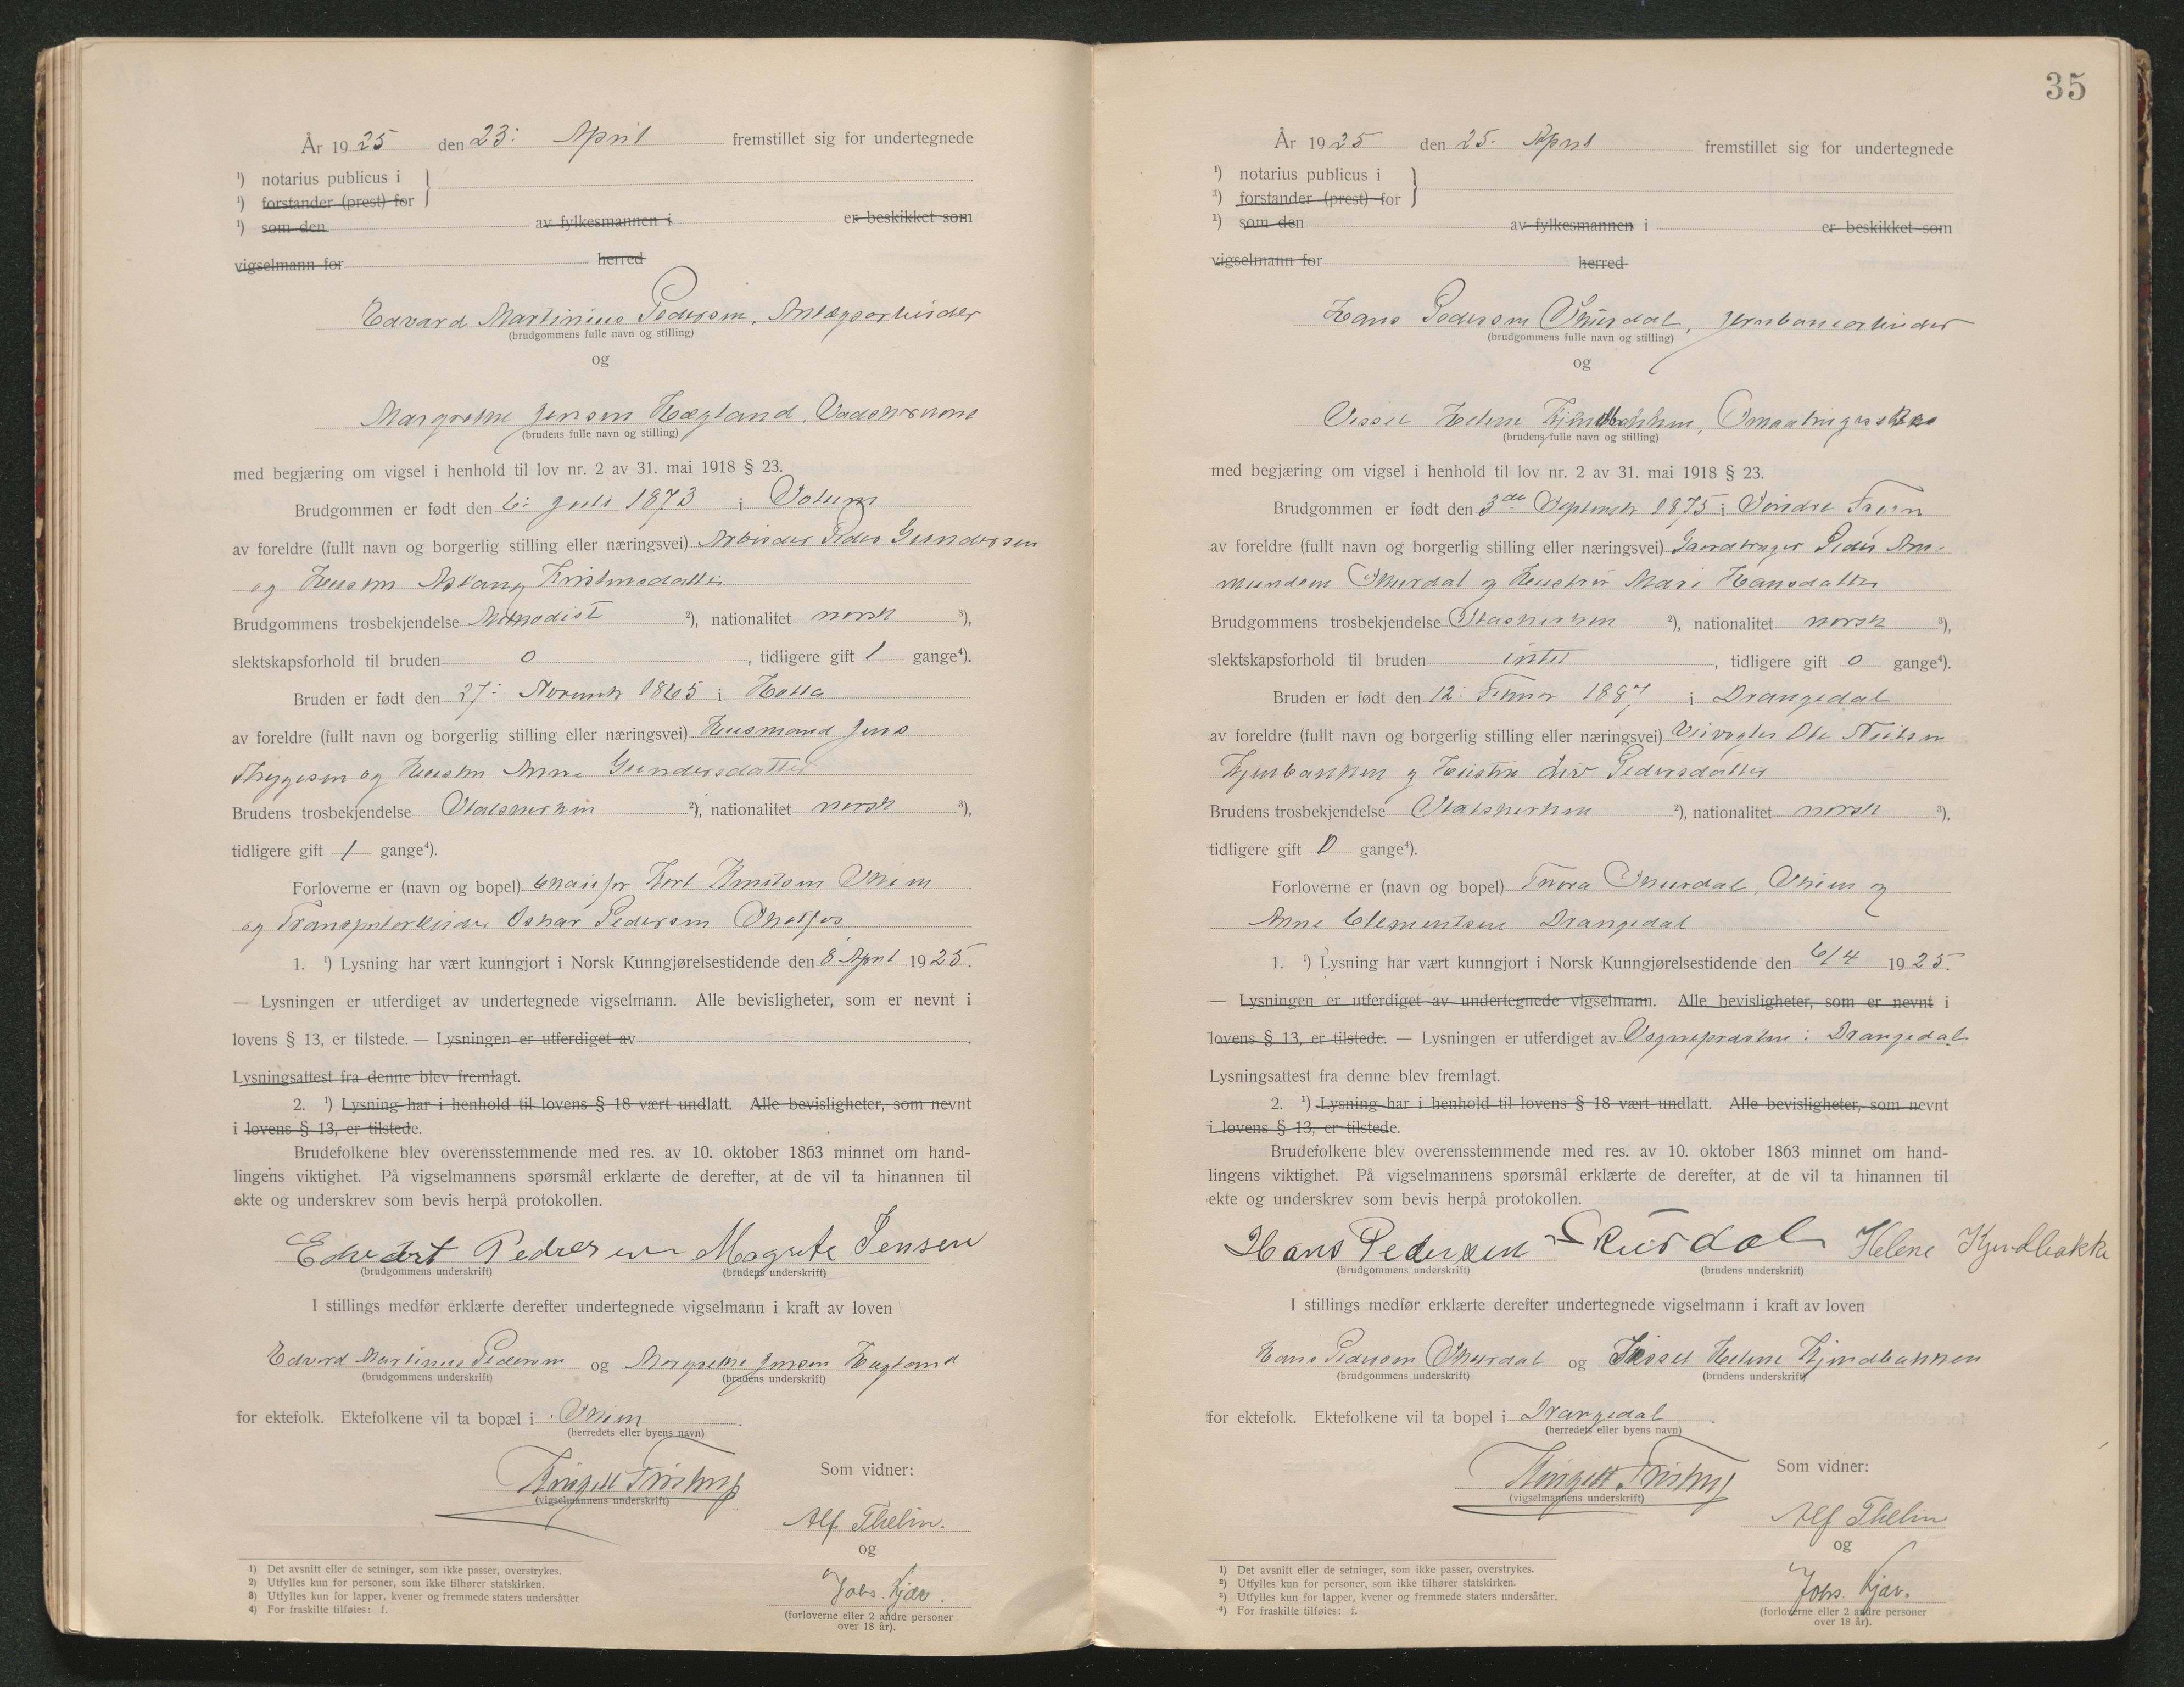 År 1925 den 23: April fremstillet sig for undertegnede
¹) notarius publicus i
¹) forstander (prest) for
¹) som den av fylkesmannen i er beskikket som
vigselmann for herred
Edvard Martinius Pedersen, Anlægsarbeider
(brudgommens fulle navn og stilling)
og
Margrethe Jensen Hægland,
(brudens fulle navn og stilling)
med begjæring om vigsel i henhold til lov nr. 2 av 31. mai 1918 § 23.
Brudgommen er født den 6: Juli 1873 i Solum
av foreldre (fullt navn og borgerlig stilling eller næringsvei) Arbeider Peder Gundersen
og Hustru Aslaug Kristensdatter
Brudgommens trosbekjendelse Methodist ²), nationalitet norsk ³),
slektskapsforhold til bruden 0, tidligere gift 1 gange⁴).
Bruden er født den 27: Novembr 1865 i Holla
av foreldre (fullt navn og borgerlig stilling eller næringsvei) Husmand Jens
Thygesen og Hustru Anne Gundersdatter
Brudens trosbekjendelse Statskirken ²), nationalitet norsk ³),
tidligere gift 1 gange⁴).
Forloverne er (navn og bopel) Karl Knutsen Skien
og Transportarbeider Oskar Pedersen Skotfos
1. ¹) Lysning har vært kunngjort i Norsk Kunngjørelsestidende den 8 April 1925.
— Lysningen er utferdiget av undertegnede vigselmann. Alle bevisligheter, som er nevnt i
lovens § 13, er tilstede. — Lysningen er utferdiget av .
Lysningsattest fra denne blev fremlagt.
2. ¹) Lysning har i henhold til lovens § 18 vært undlatt. Alle bevisligheter, som nevnt
i lovens § 13, er tilstede.
Brudefolkene blev overensstemmende med res. av 10. oktober 1863 minnet om hand-
lingens viktighet. På vigselmannens spørsmål erklærte de derefter, at de vil ta hinannen til
ekte og underskrev som bevis herpå protokollen.
Edvart Pedersen Magrete Jensen
(brudgommens underskrift) (brudens underskrift)
I stillings medfør erklærte derefter undertegnede vigselmann i kraft av loven
Edvard Martinius Pedersen og Margrethe Jensen Hægland
(brudgommens underskrift) (brudens underskrift)
for ektefolk. Ektefolkene vil ta bopæl i Skien.
(herredets eller byens navn)
(vigselmannens underskrift)
Som vidner:
Alf Thelin.
og
Johs. Kjær.
(forloverne eller 2 andre personer
over 18 år).
1) Det avsnitt eller de setninger, som ikke passer, overstrykes.
2) Utfylles kun for personer, som ikke tilhører statskirken.
3) Utfylles kun for lapper, kvener og fremmede staters undersåtter
4) For fraskilte tilføies: f.
35
År 1925 den 25. April fremstillet sig for undertegnede
¹) notarius publicus i
¹) forstander (prest) for
¹) som den av fylkesmannen i er beskikket som
vigselmann for herred
Hans Pedersen Skurdal, Jernbanearbeider
(brudgommens fulle navn og stilling)
og
Sissel Helene Kjendbakken,
(brudens fulle navn og stilling)
med begjæring om vigsel i henhold til lov nr. 2 av 31. mai 1918 § 23.
Brudgommen er født den 3de Septembr 1875 i Søndre Fron
av foreldre (fullt navn og borgerlig stilling eller næringsvei) Gaardbruger Peder Am-
mundsen Skurdal og Hustru Mari Hansdatter
Brudgommens trosbekjendelse Statskirken ²), nationalitet norsk ³),
slektskapsforhold til bruden intet, tidligere gift 0 gange⁴).
Bruden er født den 12: Februar 1887 i Drangedal
av foreldre (fullt navn og borgerlig stilling eller næringsvei) Veivogter Ole Neilsen
Kjenbakken og Hustru Liv Pedersdatter
Brudens trosbekjendelse Statskirken ²), nationalitet norsk ³),
tidligere gift 0 gange⁴).
Forloverne er (navn og bopel) Thora Skurdal, Skien og
Anne Clementsen Drangedal
1. ¹) Lysning har vært kunngjort i Norsk Kunngjørelsestidende den 6/4 1925.
— Lysningen er utferdiget av undertegnede vigselmann. Alle bevisligheter, som er nevnt i
lovens § 13, er tilstede. — Lysningen er utferdiget av Sognepresten i Drangedal.
Lysningsattest fra denne blev fremlagt.
2. ¹) Lysning har i henhold til lovens § 18 vært undlatt. Alle bevisligheter, som nevnt
i lovens § 13, er tilstede.
Brudefolkene blev overensstemmende med res. av 10. oktober 1863 minnet om hand-
lingens viktighet. På vigselmannens spørsmål erklærte de derefter, at de vil ta hinannen til
ekte og underskrev som bevis herpå protokollen.
Hans Pedersen Skurdal Helene Kjendbakke
(brudgommens underskrift) (brudens underskrift)
I stillings medfør erklærte derefter undertegnede vigselmann i kraft av loven
Hans Pedersen Skurdal og Sissel Helene Kjendbakken
(brudgommens underskrift) (brudens underskrift)
for ektefolk. Ektefolkene vil ta bopel i Drangedal.
(herredets eller byens navn)
(vigselmannens underskrift)
Som vidner:
Alf Thelin
og
Johs. Kjær.
(forloverne eller 2 andre personer
over 18 år).
¹) Det avsnitt eller de setninger, som ikke passer, overstrykes.
²) Utfylles kun for personer, som ikke tilhører statskirken.
³) Utfylles kun for lapper, kvener og fremmede staters undersåtter.
⁴) For fraskilte tilføies: f.